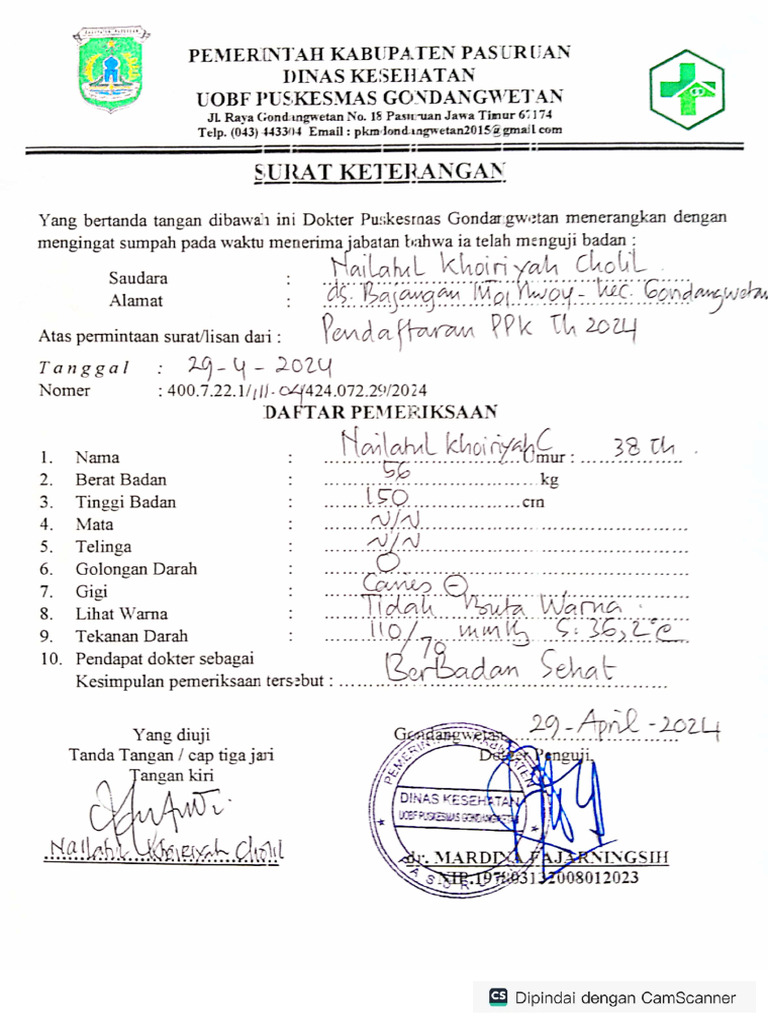 PEMERINTAH KABUPATEN PASURUAN
DINAS KESEHATAN
UOBF PUSKESMAS GONDANGWETAN
Jl. Raya Gondangwetan No. 18 Pasuruan Jawa Timur 67174
Telp. (043) 443304 Email : pkmgondangwetan2015@gmail.com
SURAT KETERANGAN
Yang bertanda tangan dibawah ini Dokter Puskesmas Gondangwetan menerangkan dengan
mengingat sumpah pada waktu menerima jabatan bahwa ia telah menguji badan :
Saudara : Nailatul Khoiriyah Cholil
Alamat : ds. Bajangan - Kec. Gondangwetan
Atas permintaan surat/lisan dari : Pendaftaran PPK Th 2024
Tanggal : 29-4-2024
Nomer : 400.7.22.1/111.04/424.072.29/2024
DAFTAR PEMERIKSAAN
1. Nama : Nailatul Khoiriyah C Umur : 38 th
2. Berat Badan : 56 kg
3. Tinggi Badan : 150 cm
4. Mata : N/N
5. Telinga : N/N
6. Golongan Darah : O
7. Gigi : Caries ⊖
8. Lihat Warna : Tidak Buta Warna
9. Tekanan Darah : 110/70 mmHg S: 36,2°C
10. Pendapat dokter sebagai
Kesimpulan pemeriksaan tersebut : Berbadan Sehat
Yang diuji
Tanda Tangan / cap tiga jari
Tangan kiri
Nailatul Khoiriyah Cholil
Gondangwetan, 29-April-2024
Dokter Penguji,
PEMERINTAH KABUPATEN
DINAS KESEHATAN
UOBF PUSKESMAS GONDANGWETAN
PASURUAN
dr. MARDINA FAJARNINGSIH
NIP.197803132008012023
CS Dipindai dengan CamScanner